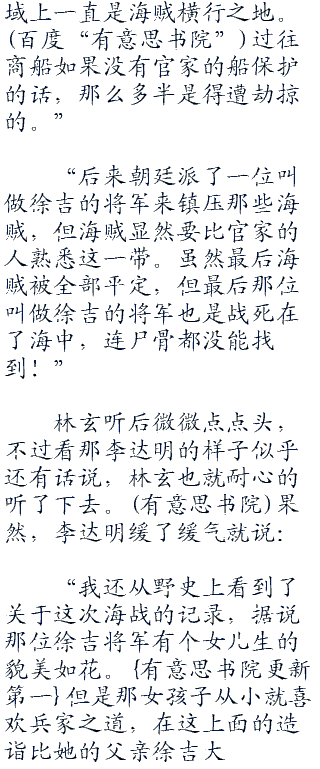 域上一直是海贼横行之地。
(百度“有意思书院”)过往
商船如果没有官家的船保护
的话，那么多半是得遭劫掠
的。”
“后来朝廷派了一位叫
做徐吉的将军来镇压那些海
贼，但海贼显然要比官家的
人熟悉这一带。虽然最后海
贼被全部平定，但最后那位
叫做徐吉的将军也是战死在
了海中，连尸骨都没能找
到！”
林玄听后微微点点头，
不过看那李达明的样子似乎
还有话说，林玄也就耐心的
听了下去。(有意思书院)果
然，李达明缓了缓气就说：
“我还从野史上看到了
关于这次海战的记录，据说
那位徐吉将军有个女儿生的
貌美如花。{有意思书院更新
第一}但是那女孩子从小就喜
欢兵家之道，在这上面的造
诣比她的父亲徐吉大